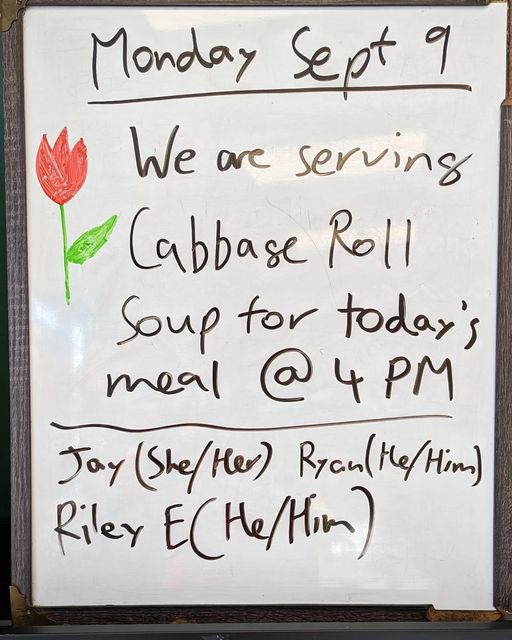 Monday Sept 9
We are serving
Cabbage Roll
Soup for today's
meal @ 4 PM
Jay (She/Her) Ryan (He/Him)
Riley E (He/Him)